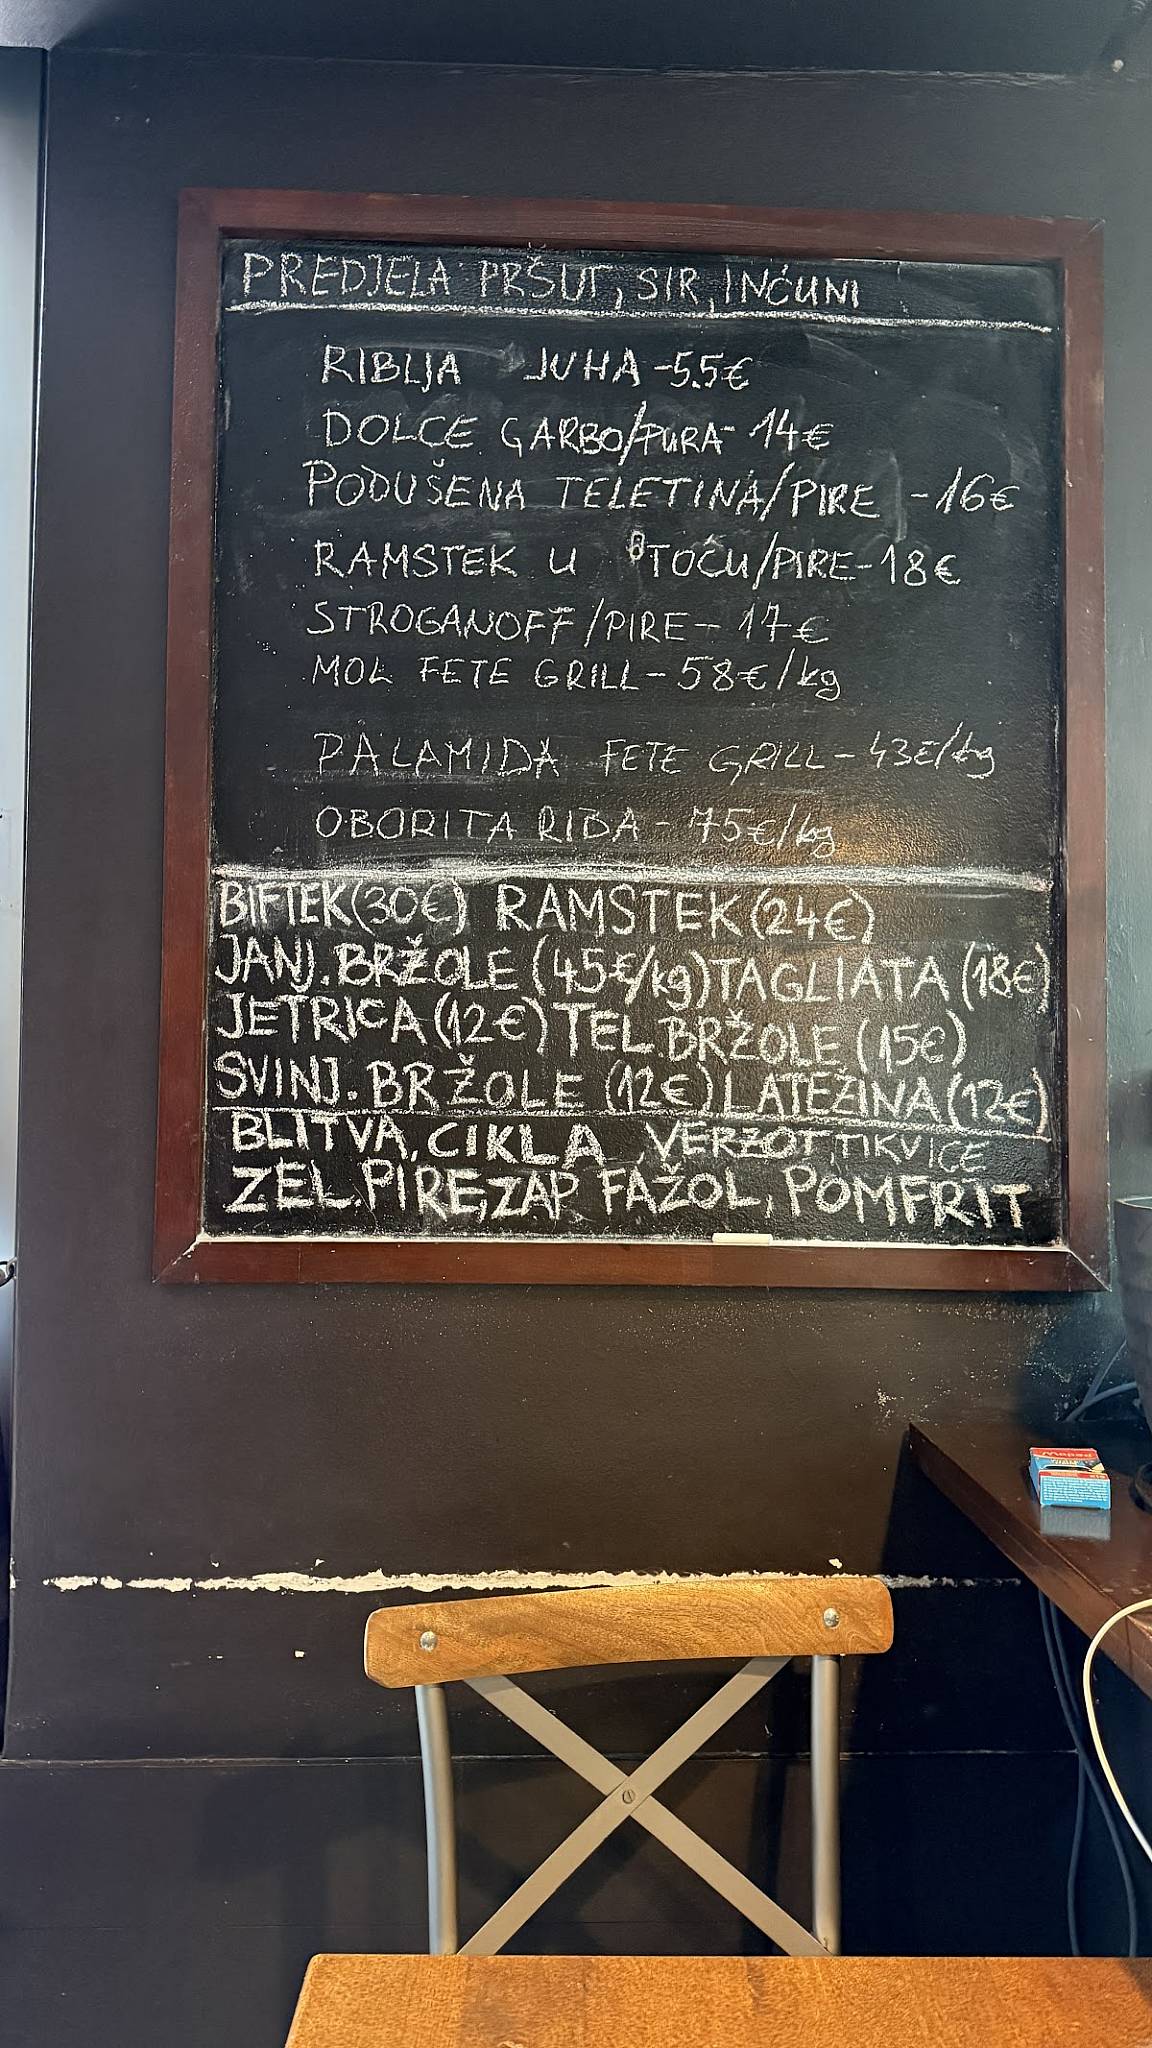 PREDJELA PRŠUT, SIR, INĆUNI
RIBLJA JUHA - 5.5€
DOLCE GARBO/PURA - 14€
PODUŠENA TELETINA/PIRE - 16€
RAMSTEK U TOĆU/PIRE - 18€
STROGANOFF/PIRE - 17€
MOL FETE GRILL - 58€/kg
PALAMIDA FETE GRILL - 43€/kg
OBORITA RIBA - 75€/kg
BIFTEK (30€) RAMSTEK (24€)
JANJ. BRŽOLE (45€/kg) TAGLIATA (18€)
JETRICA (12€) TEL. BRŽOLE (15€)
SVINJ. BRŽOLE (12€) LATEŽINA (12€)
BLITVA, CIKLA, VERZOT, TIKVICE
ZEL. PIRE, ZAP FAŽOL, POMFRIT